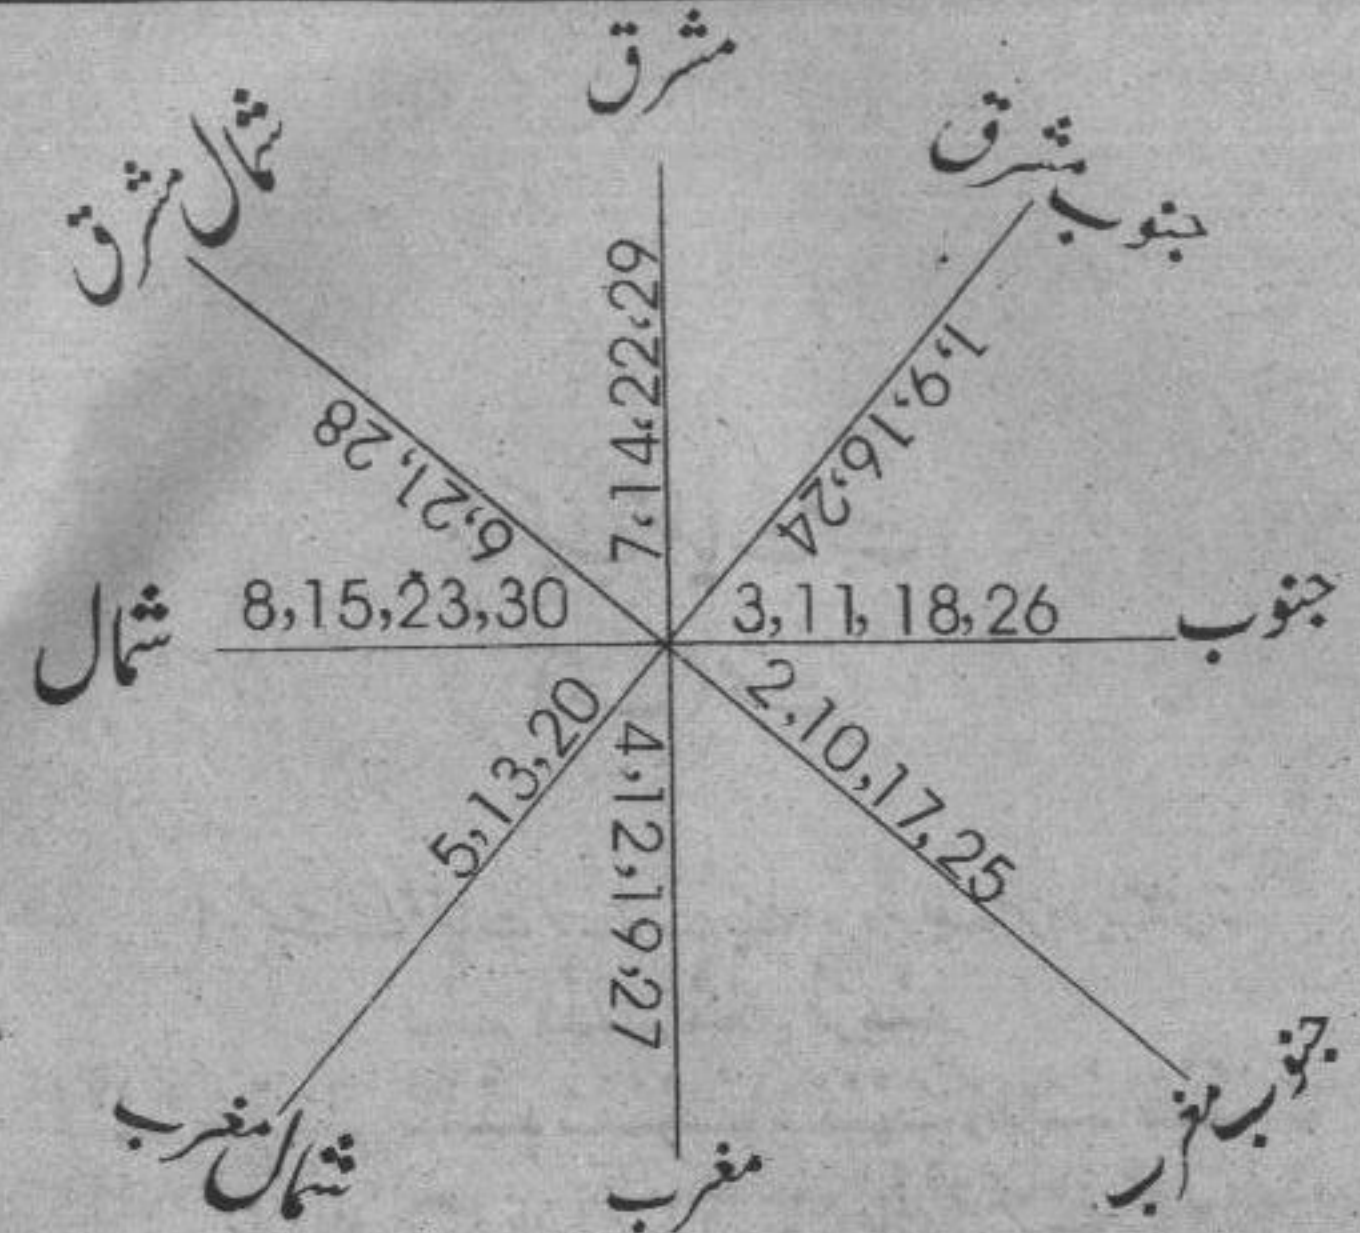 مشرق
جنوب مشرق
شمال مشرق
7,14,22,29
1,9,16,24
6,21,28
شمال
8,15,23,30
3,11,18,26
جنوب
5,13,20
4,12,19,27
2,10,17,25
شمال مغرب
مغرب
جنوب مغرب